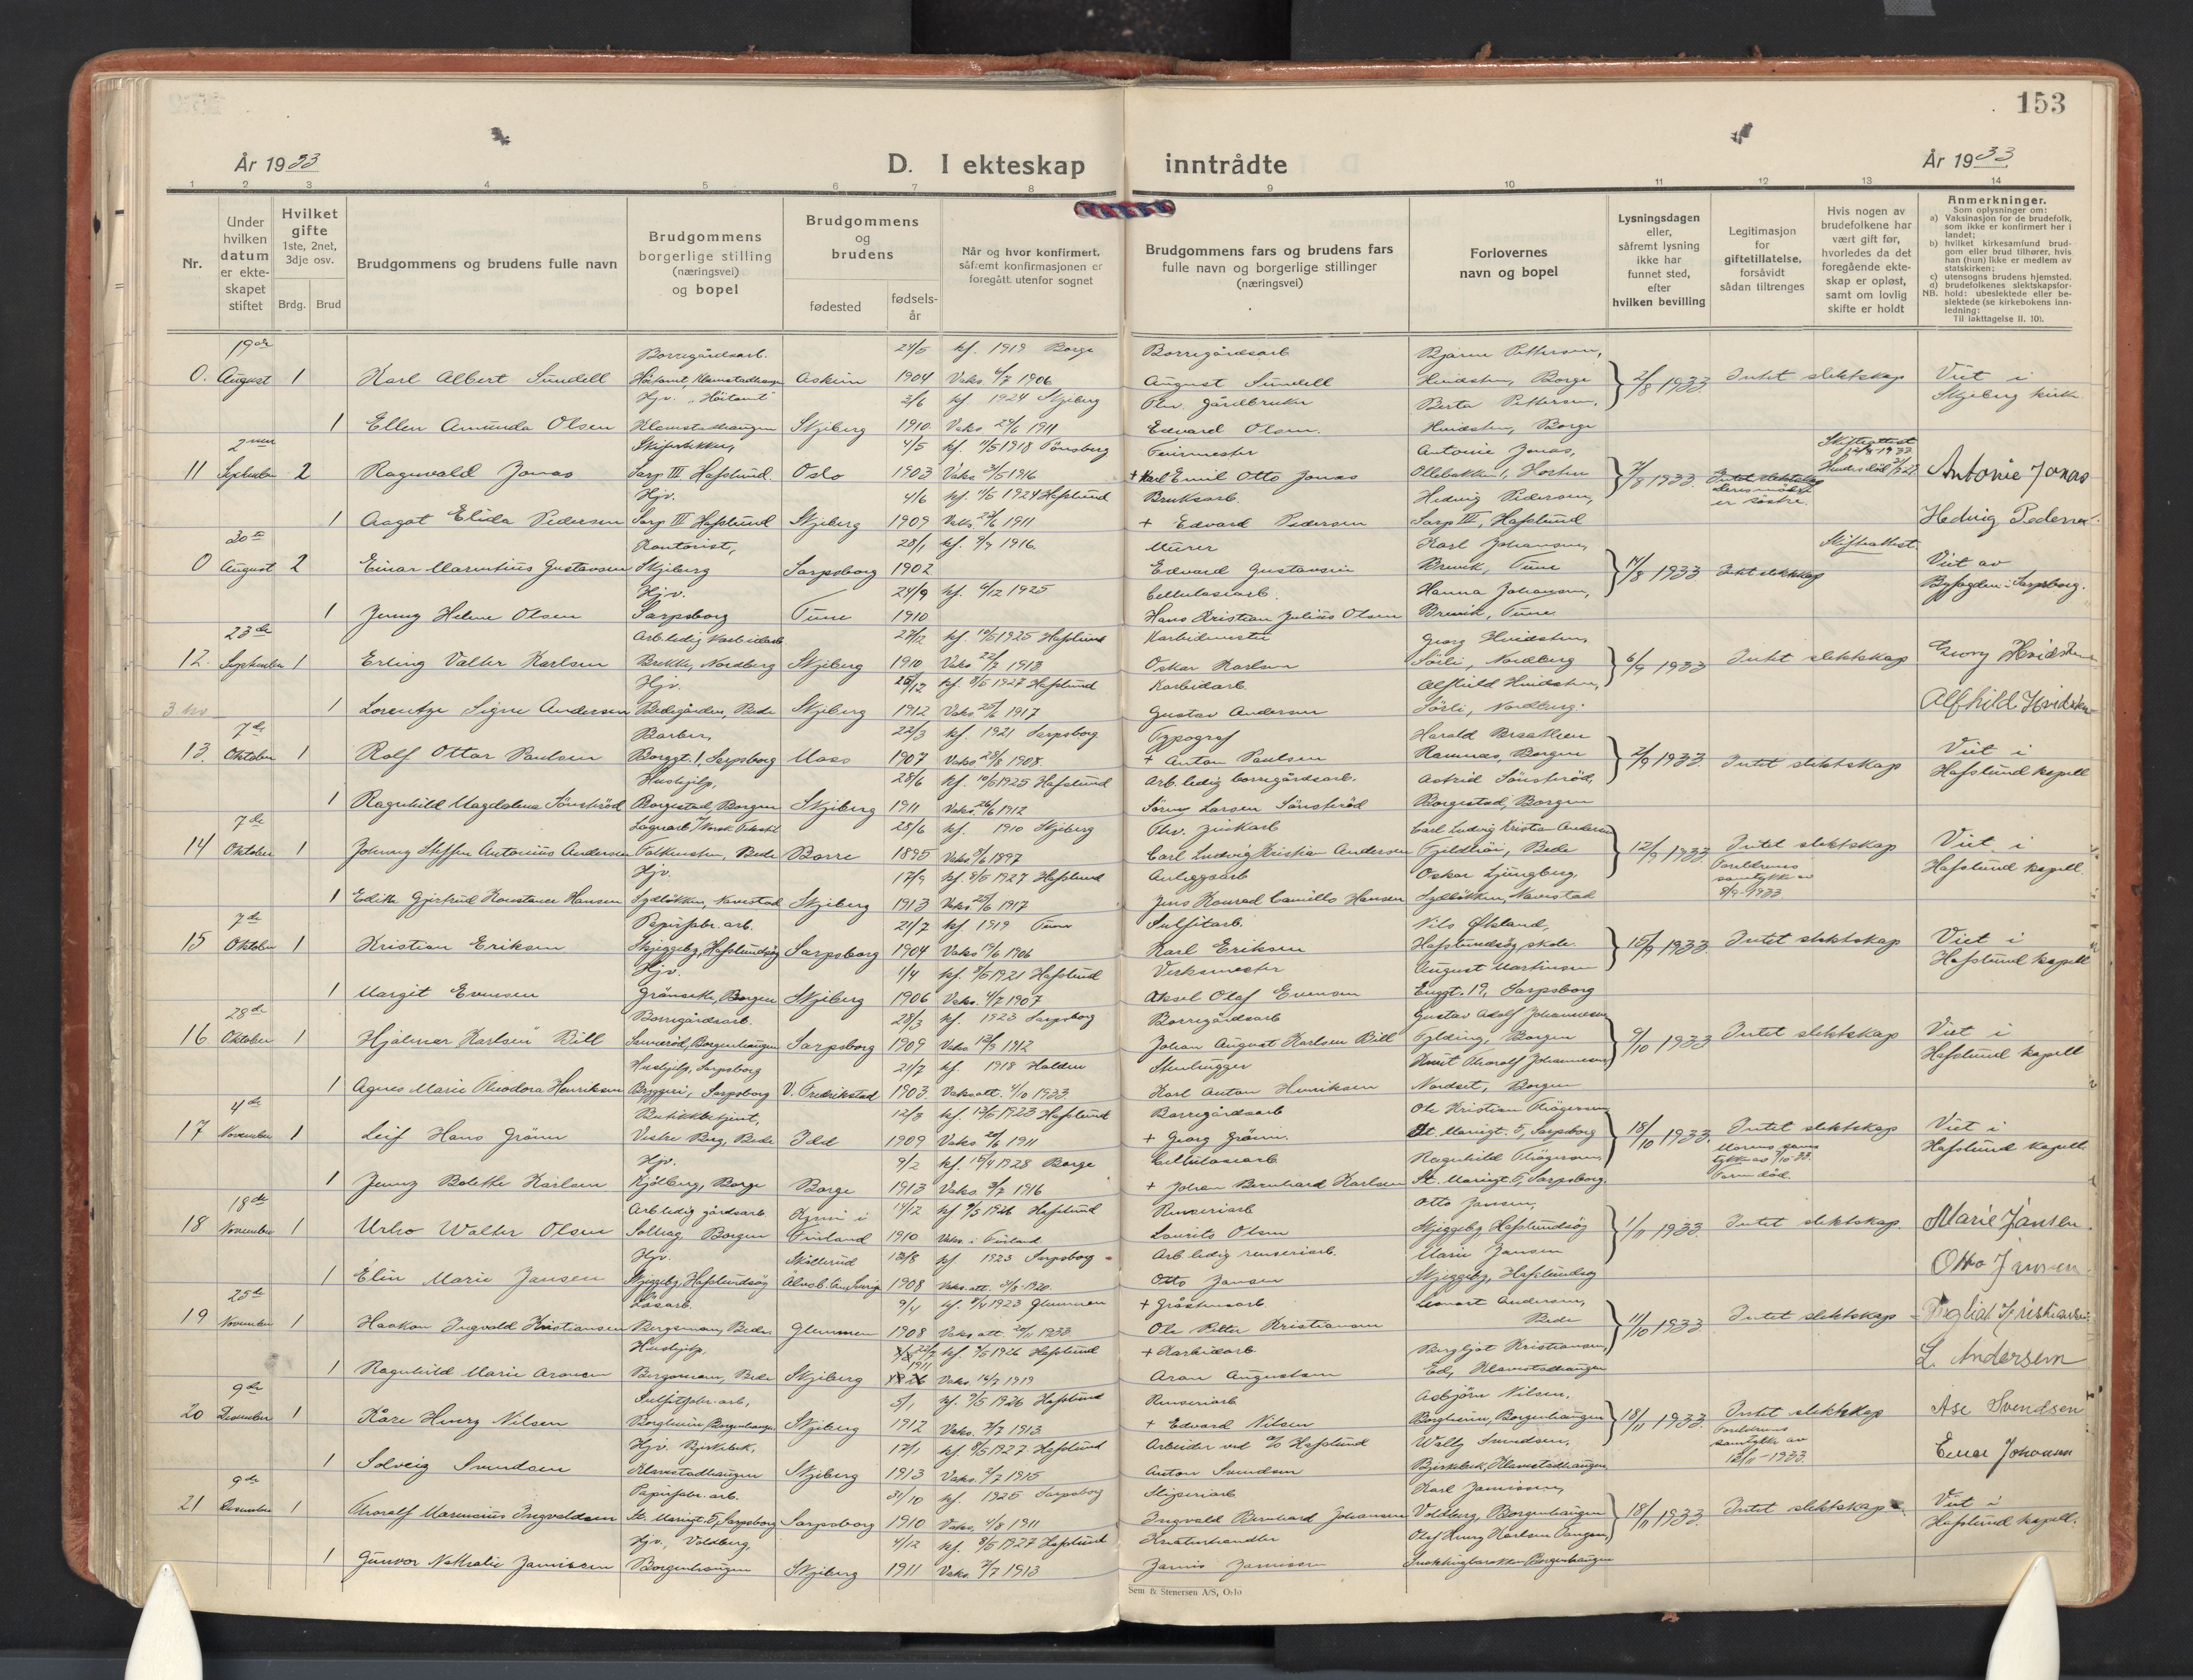 153
År 1933
D. I ekteskap inntrådte
År 1933
1 2 3 4 5 6 7 8 9 10 11 12 13 14
Nr.
Under hvilken datum er ekteskapet stiftet
Hvilket gifte 1ste, 2net, 3dje osv.
Brdg. Brud
Brudgommens og brudens fulle navn
Brudgommens borgerlige stilling (næringsvei) og bopel
Brudgommens og brudens
fødested
fødsels-år
Når og hvor konfirmert, såfremt konfirmasjonen er foregått utenfor sognet
Brudgommens fars og brudens fars fulle navn og borgerlige stillinger (næringsvei)
Forlovernes navn og bopel
Lysningsdagen eller, såfremt lysning ikke har funnet sted, efter hvilken bevilling
Legitimasjon for giftetillatelse, forsåvidt sådan tiltrenges
Hvis nogen av brudefolkene har vært gift før, hvorledes da det foregående ekteskap er opløst, samt om lovlig skifte er holdt
Anmerkninger.
Som oplysninger om:
a) Vaksinasjon for de brudefolk, som ikke er konfirmert her i landet;
b) hvilket kirkesamfund brudgom eller brud tilhører, hvis han (hun) ikke er medlem av statskirken;
c) utensogns brudens hjemsted.
d) brudefolkenes slektskapsforhold: ubeslektede eller beslektede (se kirkebokens innledning:
NB. Til iakttagelse II. 10).
19de Borregårdsarb. 24/5 kf. 1919 Borge Borregårdsarb Bjarne Pettersen,
0. August 1 Karl Albert Sundell Askim 1904 Vaks. 6/7 1906 August Sundell Hvidsten, Borge 2/8 1933 Intet slektskap Viet i
Hjv. "Höitomt" 3/6 kf. 1924 Skjeberg gårdbruker Berta Pettersen, Skjeberg kirke
1 Ellen Amunda Olsen Klavestadhaugen Skjeberg 1910 Vaks 24/6 1911 Edvard Olsen. Hvidsten, Borge
2nen 4/5 1918 Tönsberg Feiermester Antonie Jonas, Skifteattest
11 September 2 Ragnvald Jonas Sarp III Hafslund. Oslo 1903 Vaks 1916 + Karl Emil Otto Jonas Horten 7/8 1933. Intet slektskap Antonie Jonas
Hjv. 4/6 kf. 1924 Hafslund Bruksarb. Hedvig Pedersen, er søstre.
1 Aagot Elida Pedersen Sarp III Hafslund Skjeberg 1909 Vaks 1911 + Edvard Pedersen Sarp III, Hafslund Hedvig Pedersen.
30te Kontorist, 28/1 kf. 1916 Murer Karl Johansen, Skifteattest
0 August 2 Einar Marentius Gustavsen Skjeberg Sarpsborg 1902 Edvard Gustavsen Brevik, Tune 14/8 1933 Intet slektskap Viet av
Hjv. 24/9 kf. 6/12 1925 Cellulosearb. Hanna Johansen, Byfogden i Sarpsborg.
1 Jenny Helene Olsen Sarpsborg Tune 1910 Hans Kristian Julius Olsen Brevik, Tune
23de Arb.ledig karbidarb 1925 Hafslund Karbidmester Georg Hvidsten,
12. September 1 Erling Valter Karlsen Brekke, Nordberg Skjeberg 1910 Vaks 1913 Oskar Karlsen Sörli, Nordberg 6/9 1933 Intet slektskap Georg Hvidsten
Hjv. 26/12 kf. 1927 Hafslund Karbidarb. Alfhild Hvidsten,
1 Lorentze Signe Andersen Bedegården, Bede Skjeberg 1912 Vaks. 1917 Gustav Andersen Sörli, Nordberg. Alfhild Hvidsten
7de Barber, 22/3 kf. 1921 Sarpsborg Typograf Harald
13. Oktober 1 Rolf Ottar Paulsen Borggt. 1, Sarpsborg Moss 1907 Vaks 28/8 1908. + Anton Paulsen Ramnes, Borgen 2/9 1933. Intet slektskap Viet i
Hushjelp, 28/6 kf. 1925 Hafslund Arb.ledig borregårdsarb. Astrid Sönsteröd, Hafslund kapell
1 Ragnhild Magdalena Sönsteröd Borgestad, Borgen Skjeberg 1911 Vaks. 26/6 1912 Sören Larsen Sönsteröd Borgestad, Borgen
7de 28/6 kf. 1910 Skjeberg Carl Ludvig Kristian Andersen
14 Oktober 1 Johnny Steffen Antonius Andersen Falkensten, Bede Borre 1895 Vaks 1897 Carl Ludvig Kristian Andersen Bede 12/9 1933 Intet slektskap Viet i
Hjv. 17/9 kf. 1927 Hafslund Anleggsarb Oskar Ljungberg, Foreldrenes samtykke av 8/9-1933 Hafslund kapell.
1 Edith Gjertrud Konstance Hansen Navestad Skjeberg 1913 Vaks. 1917 Jens Konrad Camillo Hansen Navestad
7de Papirfabr. arb. 21/7 kf. 1919 Tune Sulfitarb. Nils Økland,
15 Oktober 1 Kristian Eriksen Skjeggeby, Hafslundsøy Sarpsborg 1904 Vaks 1906 Karl Eriksen Hafslundsøy skole. 15/9 1933 Intet slektskap Viet i
Hjv. 1/4 kf. 1921 Hafslund Verksmester August Martinsen Hafslund kapell
1 Margit Evensen Borgen Skjeberg 1906 Vaks. 4/7 1907 Aksel Olaf Evensen Enggt. 19, Sarpsborg
28de Borregårdsarb. 28/3 kf. 1923 Sarpsborg Borregårdsarb Gustav Adolf Johannesen
16 Oktober 1 Hjalmar Karlsen Bill Borgenhaugen Sarpsborg 1909 Vaks 1912 Johan August Karlsen Bill Borgen 9/10 1933 Intet slektskap Viet i
Hushjelp, Sarpsborg 21/7 kf 1918 Halden Stenhugger Knut Thorolf Johannesen Hafslund kapell
1 Agnes Marie Theodora Henriksen Bryggeri, Sarpsborg V. Fredrikstad 1903. Vaks.att. 4/10 1933. Karl Anton Henriksen Nordset, Borgen
4de Butikkbetjent, 12/3 kf. 1923 Hafslund Borregårdsarb Ole Kristian Thögersen
17 November 1 Leif Hans Grönn Vestre Borg, Bede Idd 1909 Vaks 1911 + Georg Grönn. St. Mariegt. 5, Sarpsborg 18/10 1933. Intet slektskap Viet i
Hjv. 9/2 kf. 1928 Borge Cellulosearb Ragnhild Thögersen, Morens samtykke av 7/10-33. Faren död. Hafslund kapell
1 Jenny Bolette Karlsen Kjölberg, Borge Borge 1913 Vaks. 3/7 1916 + Johan Bernhard Karlsen St. Mariegt. 5, Sarpsborg.
18de Arb.ledig gårdsarb 14/12 kf 1926 Hafslund Renseriarb Otto Jansen,
18 November 1 Urho Walter Olsen Solhaug Borgen Kymi i Finland 1910 Vaks. i Finland Laurits Olsen Skjeggeby Hafslundsøy 1/11 1933. Intet slektskap. Marie Jansen.
Hjv. 13/8 kf 1923 Sarpsborg Arb.ledig renseriarb. Marie Jansen
1 Elin Marie Jansen Skjeggeby, Hafslundsøy 1908 Vaks.att. 1920. Otto Jansen Skjeggeby, Hafslundsøy Otto Jansen
25de Løsarb. 9/4 kf. 1923 Glemmen + Gråstensarb Lenart Andersen,
19 November 1 Haakon Ingvald Kristiansen Bergsmoen, Bede Glemmen 1908 Vaks.att. 1933. Ole Petter Kristiansen Bede 11/10 1933 Intet slektskap
Hushjelp, 22/7 kf. 1926 Hafslund + Karbidarb. Bergljot Kristiansen, L. Andersen
1 Ragnhild Marie Aronsen Bergsmoen, Bede Skjeberg 1911 Vaks. 1919 Aron Augustsen Klavestadhaugen
9de Sulfitfabr. arb. 5/1 kf. 1926 Hafslund Renseriarb Asbjörn Nilsen,
20 Desember 1 Kåre Henry Nilsen Borgheim, Borgenhaugen Skjeberg 1912 Vaks. 3/7 1913 + Edvard Nilsen Borgheim, Borgenhaugen 18/11 1933. Intet slektskap Åse Svendsen
Hjv. Bjerkebek, 17/1 kf 1927 Hafslund Arbeider ved A/S Hafslund Svendsen, Foreldrenes samtykke av 12/11-1933.
1 Solveig Svendsen Klavestadhaugen Skjeberg 1913 Vaks. 1915 Anton Svendsen Bjerkebek, Klavestadhaugen Einar Johansen
9de Papirfabr. arb. 31/10 kf. 1925 Sarpsborg Sliperiarb Karl Jamissen,
21 Desember 1 Thoralf Marensius Ingvaldsen St. Mariegt. 5, Sarpsborg Sarpsborg 1910 Vaks. 4/8 1911 Ingvald Bernhard Johansen Voldberg, Borgenhaugen 18/11 1933. Intet slektskap Viet i
Hjv., Voldberg, 4/12 kf. 1927 Hafslund Olaf Henry Karlsen Hafslund kapell.
1 Gunvor Nathalie Jamissen Borgenhaugen Skjeberg 1911 Vaks. 1913 Jamis Jamissen Borgenhaugen
Sem & Stenersen A/S, Oslo